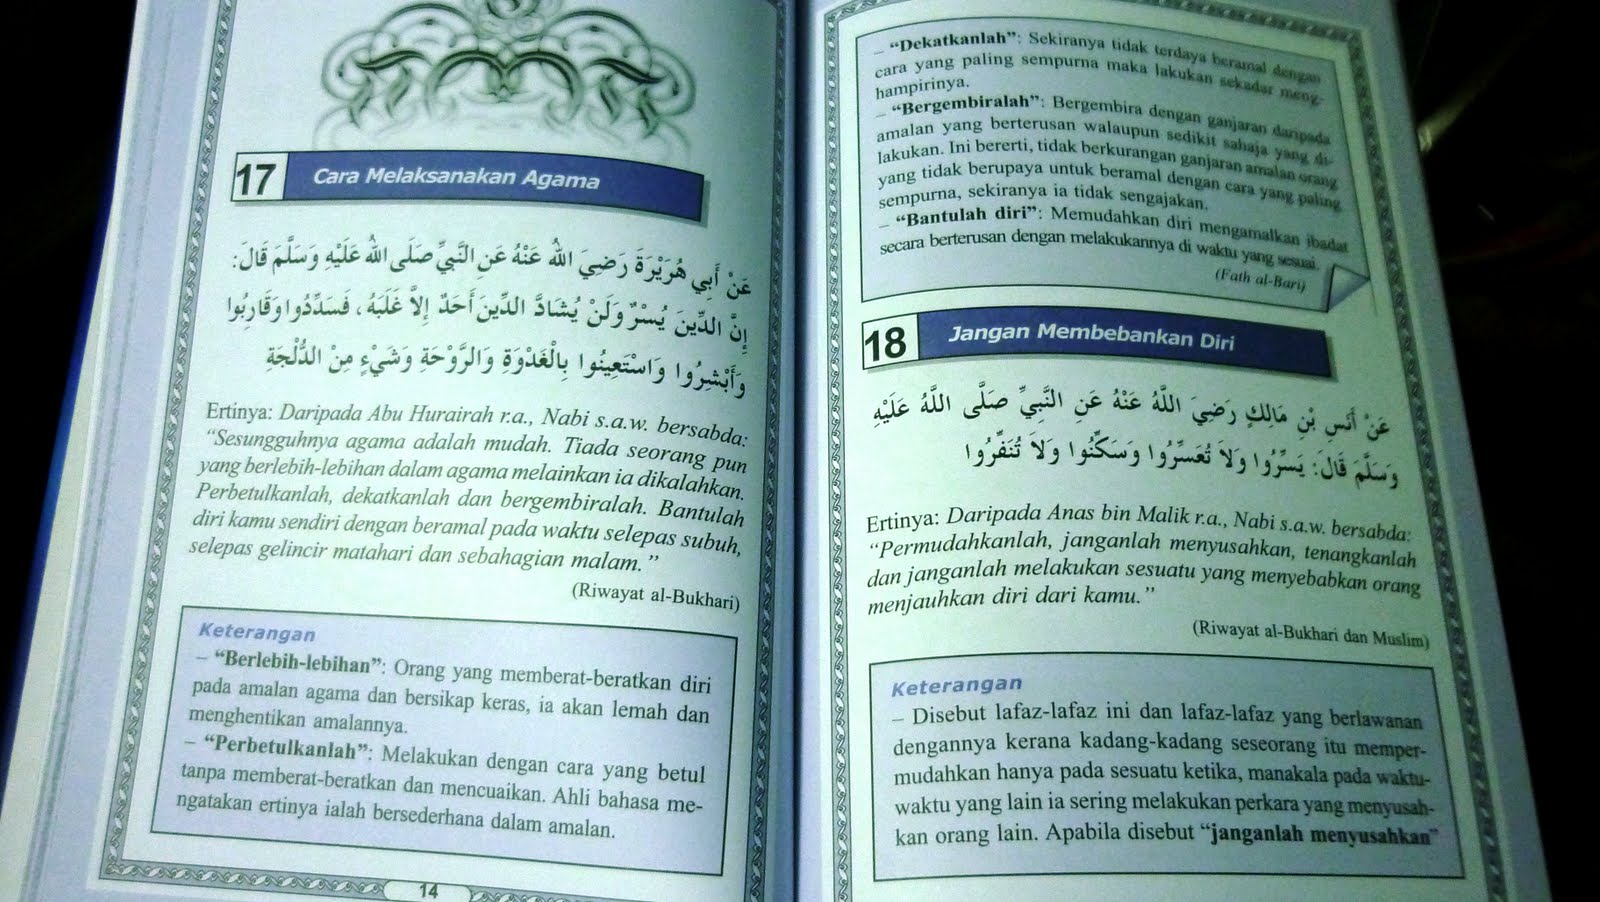 17 Cara Melaksanakan Agama
عَنْ أَبِي هُرَيْرَةَ رَضِيَ اللهُ عَنْهُ عَنِ النَّبِيِّ صَلَى اللهُ عَلَيْهِ وَسَلَّمَ قَالَ:
إِنَّ الدِّينَ يُسْرٌ وَلَنْ يُشَادَّ الدِّينَ أَحَدٌ إِلاَّ غَلَبَهُ، فَسَدِّدُوا وَقَارِبُوا
وَأَبْشِرُوا وَاسْتَعِينُوا بِالْغَدْوَةِ وَالرَّوْحَةِ وَشَيْءٍ مِنْ الدُّلْجَةِ
Ertinya: Daripada Abu Hurairah r.a., Nabi s.a.w. bersabda:
“Sesungguhnya agama adalah mudah. Tiada seorang pun
yang berlebih-lebihan dalam agama melainkan ia dikalahkan.
Perbetulkanlah, dekatkanlah dan bergembiralah. Bantulah
diri kamu sendiri dengan beramal pada waktu selepas subuh,
selepas gelincir matahari dan sebahagian malam.”
(Riwayat al-Bukhari)
Keterangan
– “Berlebih-lebihan”: Orang yang memberat-beratkan diri
pada amalan agama dan bersikap keras, ia akan lemah dan
menghentikan amalannya.
– “Perbetulkanlah”: Melakukan dengan cara yang betul
tanpa memberat-beratkan dan mencuaikan. Ahli bahasa me-
ngatakan ertinya ialah bersederhana dalam amalan.
14
– “Dekatkanlah”: Sekiranya tidak terdaya beramal dengan
cara yang paling sempurna maka lakukan sekadar meng-
hampirinya.
– “Bergembiralah”: Bergembira dengan ganjaran daripada
amalan yang berterusan walaupun sedikit sahaja yang di-
lakukan. Ini bererti, tidak berkurangan ganjaran amalan orang
yang tidak berupaya untuk beramal dengan cara yang paling
sempurna, sekiranya ia tidak sengajakan.
– “Bantulah diri”: Memudahkan diri mengamalkan ibadat
secara berterusan dengan melakukannya di waktu yang sesuai.
(Fath al-Bari)
18 Jangan Membebankan Diri
عَنْ أَنَسِ بْنِ مَالِكٍ رَضِيَ اللَّهُ عَنْهُ عَنِ النَّبِيِّ صَلَّى اللَّهُ عَلَيْهِ
وَسَلَّمَ قَالَ: يَسِّرُوا وَلاَ تُعَسِّرُوا وَسَكِّنُوا وَلاَ تُنَفِّرُوا
Ertinya: Daripada Anas bin Malik r.a., Nabi s.a.w. bersabda:
“Permudahkanlah, janganlah menyusahkan, tenangkanlah
dan janganlah melakukan sesuatu yang menyebabkan orang
menjauhkan diri dari kamu.”
(Riwayat al-Bukhari dan Muslim)
Keterangan
– Disebut lafaz-lafaz ini dan lafaz-lafaz yang berlawanan
dengannya kerana kadang-kadang seseorang itu memper-
mudahkan hanya pada sesuatu ketika, manakala pada waktu-
waktu yang lain ia sering melakukan perkara yang menyusah-
kan orang lain. Apabila disebut “janganlah menyusahkan”